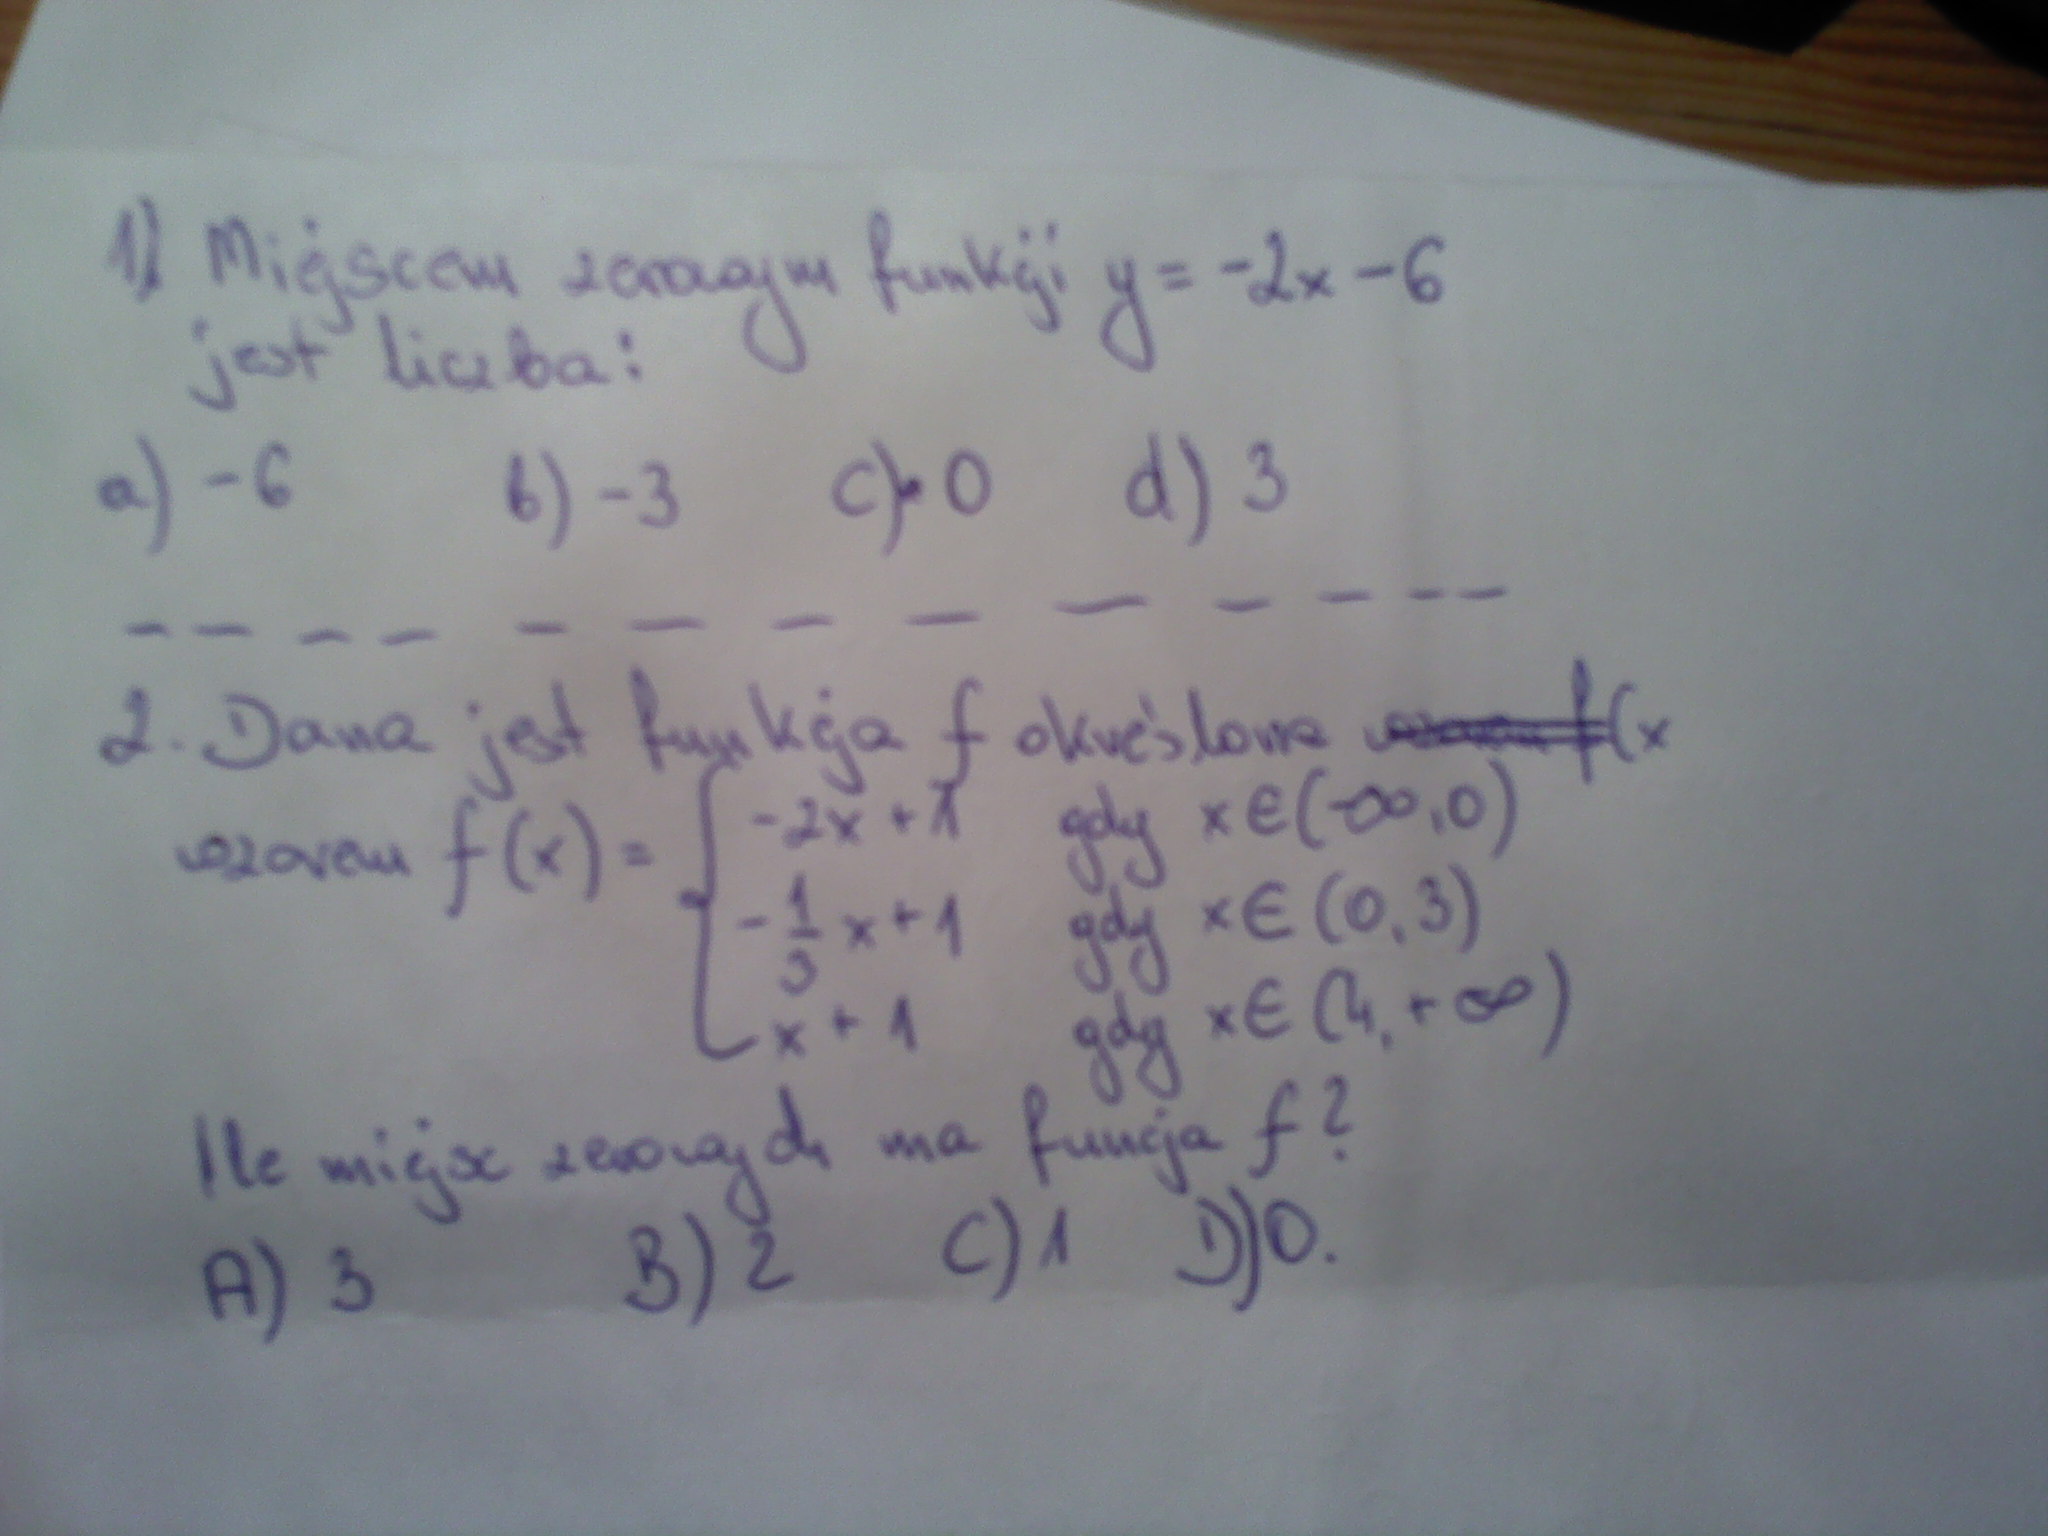 1) Miejscem zerowym funkcji y = -2x - 6
jest liczba:
a) -6 b) -3 c) 0 d) 3
2. Dana jest funkcja f określona
wzorem f(x) = { -2x + 1 gdy x ∈ (-∞, 0)
-1/3 x + 1 gdy x ∈ (0, 3)
x + 1 gdy x ∈ (4, +∞)
Ile miejsc zerowych ma funcja f?
A) 3 B) 2 C) 1 D) 0.